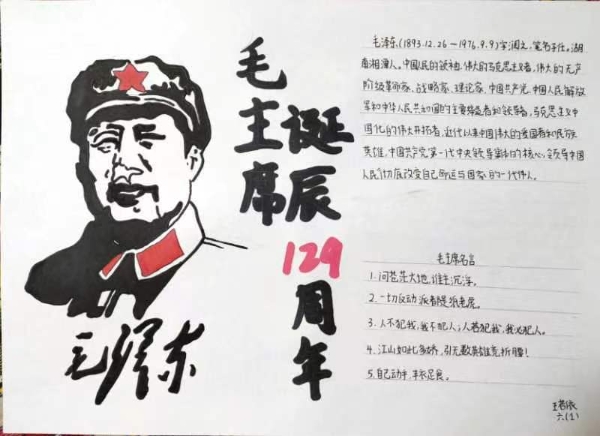 毛主席
诞辰129周年
毛泽东
毛泽东(1893.12.26—1976.9.9)字润之,笔名子任。湖
南湘潭人。中国人民的领袖,伟大的马克思主义者,伟大的无产
阶级革命家、战略家、理论家,中国共产党、中国人民解放
军和中华人民共和国的主要缔造者和领导者,马克思主义中
国化的伟大开拓者,近代以来中国伟大的爱国者和民族
英雄,中国共产党第一代中央领导集体的核心,领导中国
人民彻底改变自己命运与国家的一代伟人。
毛主席名言
1.问苍茫大地,谁主沉浮。
2.一切反动派都是纸老虎。
3.人不犯我,我不犯人;人若犯我,我必犯人。
4.江山如此多娇,引无数英雄竞折腰!
5.自己动手,丰衣足食。
六(1)